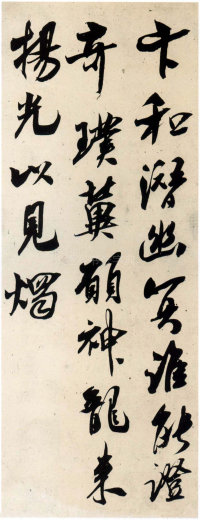 卞和潛幽冥誰能證
奇璞冀願神龍来
揚光以見燭